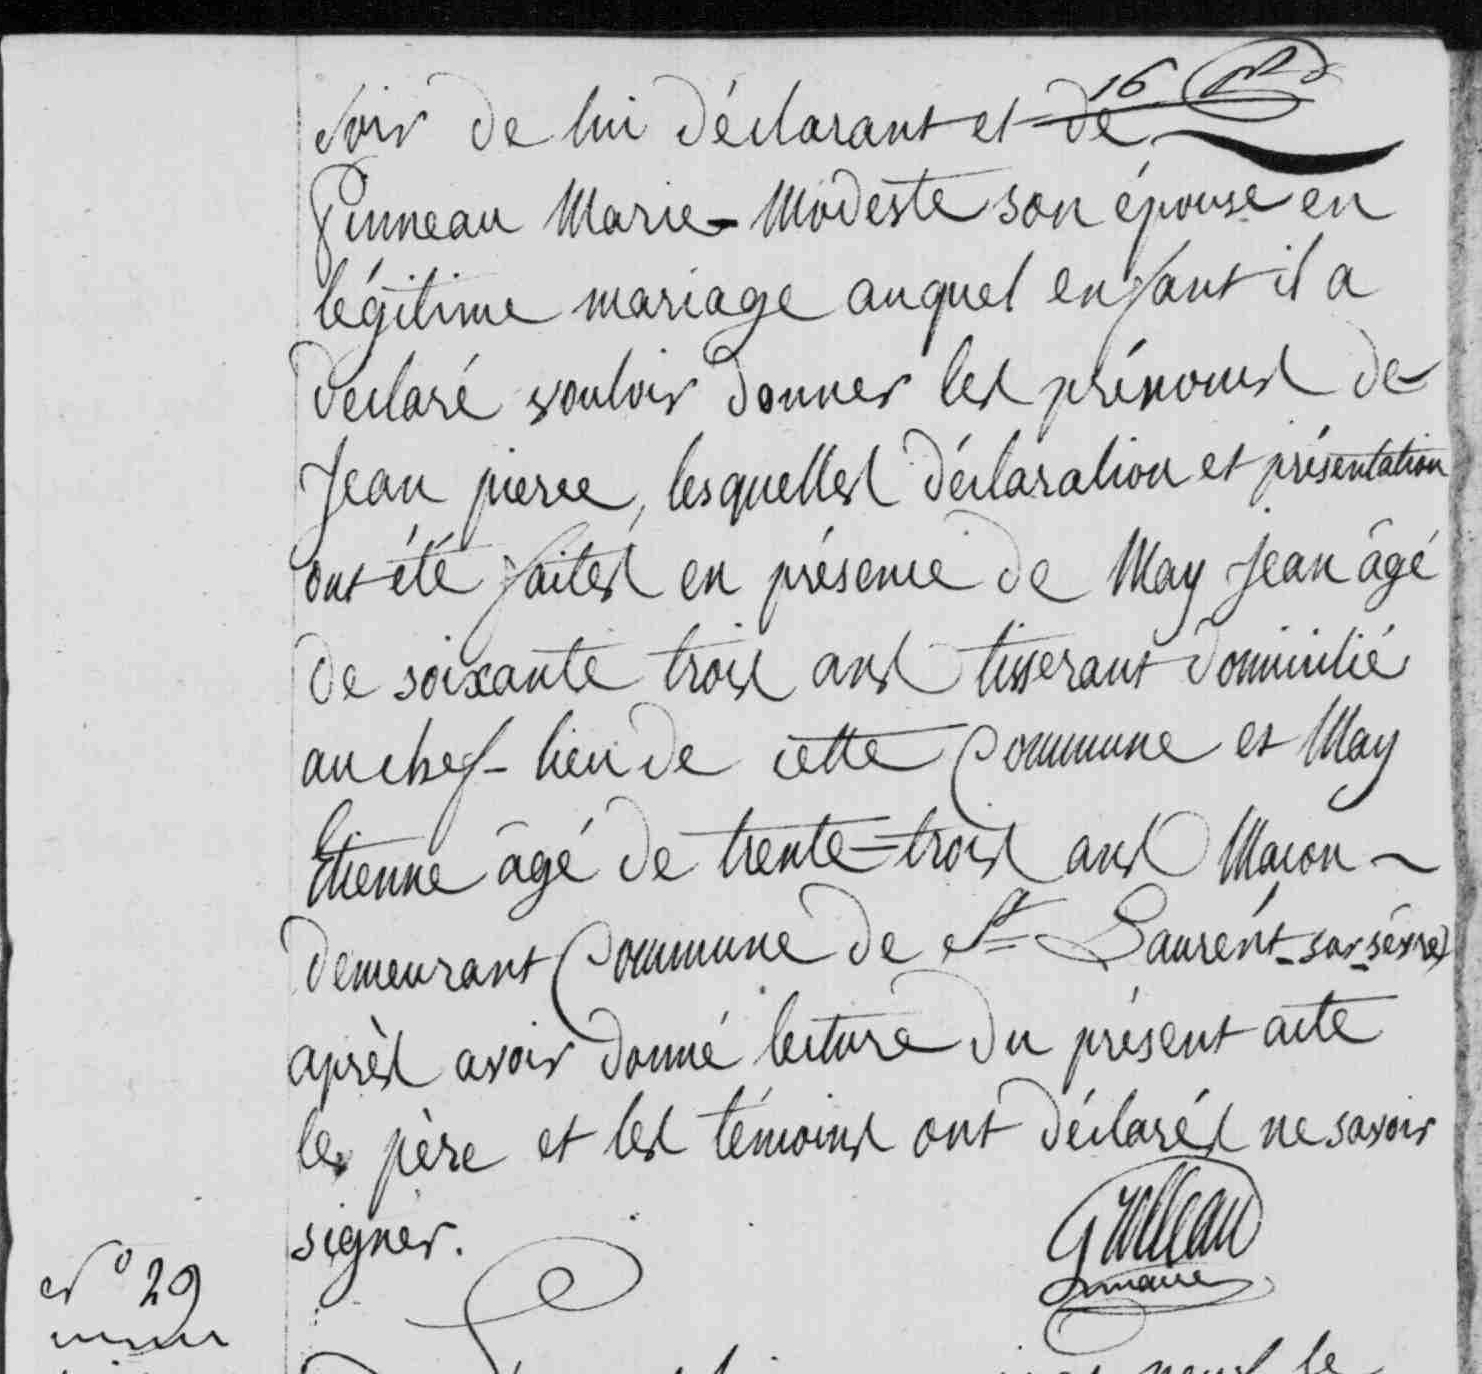 16
soir de lui déclarant et de
Pinneau Marie-Modeste son épouse en
légitime mariage auquel enfant il a
declaré vouloir donner les prénoms de
Jean pierre, lesquelles déclaration et présentation
ont été faites en présence de May Jean âgé
de soixante trois ans tisserant domicilié
au chef-lieu de cette Commune et May
Etienne âgé de trente=trois ans Macon
demeurant Commune de St Laurént-sur-sèvre
après avoir donné lecture du présent acte
les père et les témoins ont déclarés ne savoir
signer.
maire
N° 29